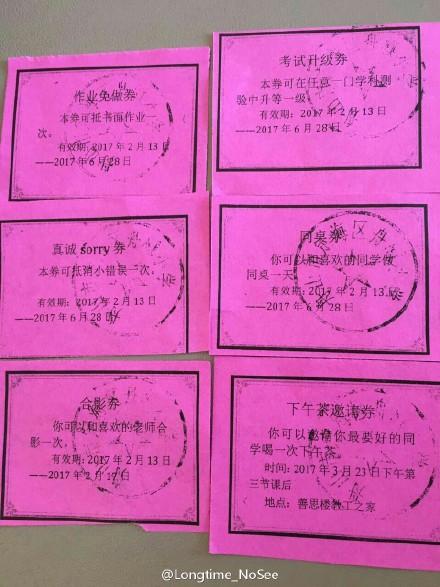 作业免做券
本券可抵书面作业一
次。
有效期：2017 年 2 月 13 日
——2017 年 6 月 28 日
考试升级券
本券可在任意一门学科测
验中升等一级。
有效期：2017 年 2 月 13 日
——2017 年 6 月 28 日
真诚 sorry 券
本券可抵消小错误一次。
有效期：2017 年 2 月 13 日
——2017 年 6 月 28 日
同桌券
你可以和喜欢的同学做
同桌一天。
有效期：2017 年 2 月 13 日
——2017 年 6 月 28 日
合影券
你可以和喜欢的老师合
影一次。
有效期：2017 年 2 月 13 日
——2017 年 2 月 17 日
下午茶邀请券
你可以邀请你最要好的同
学喝一次下午茶。
时间：2017 年 3 月 21 日下午第
三节课后
地点：善思楼教工之家
@Longtime_NoSee